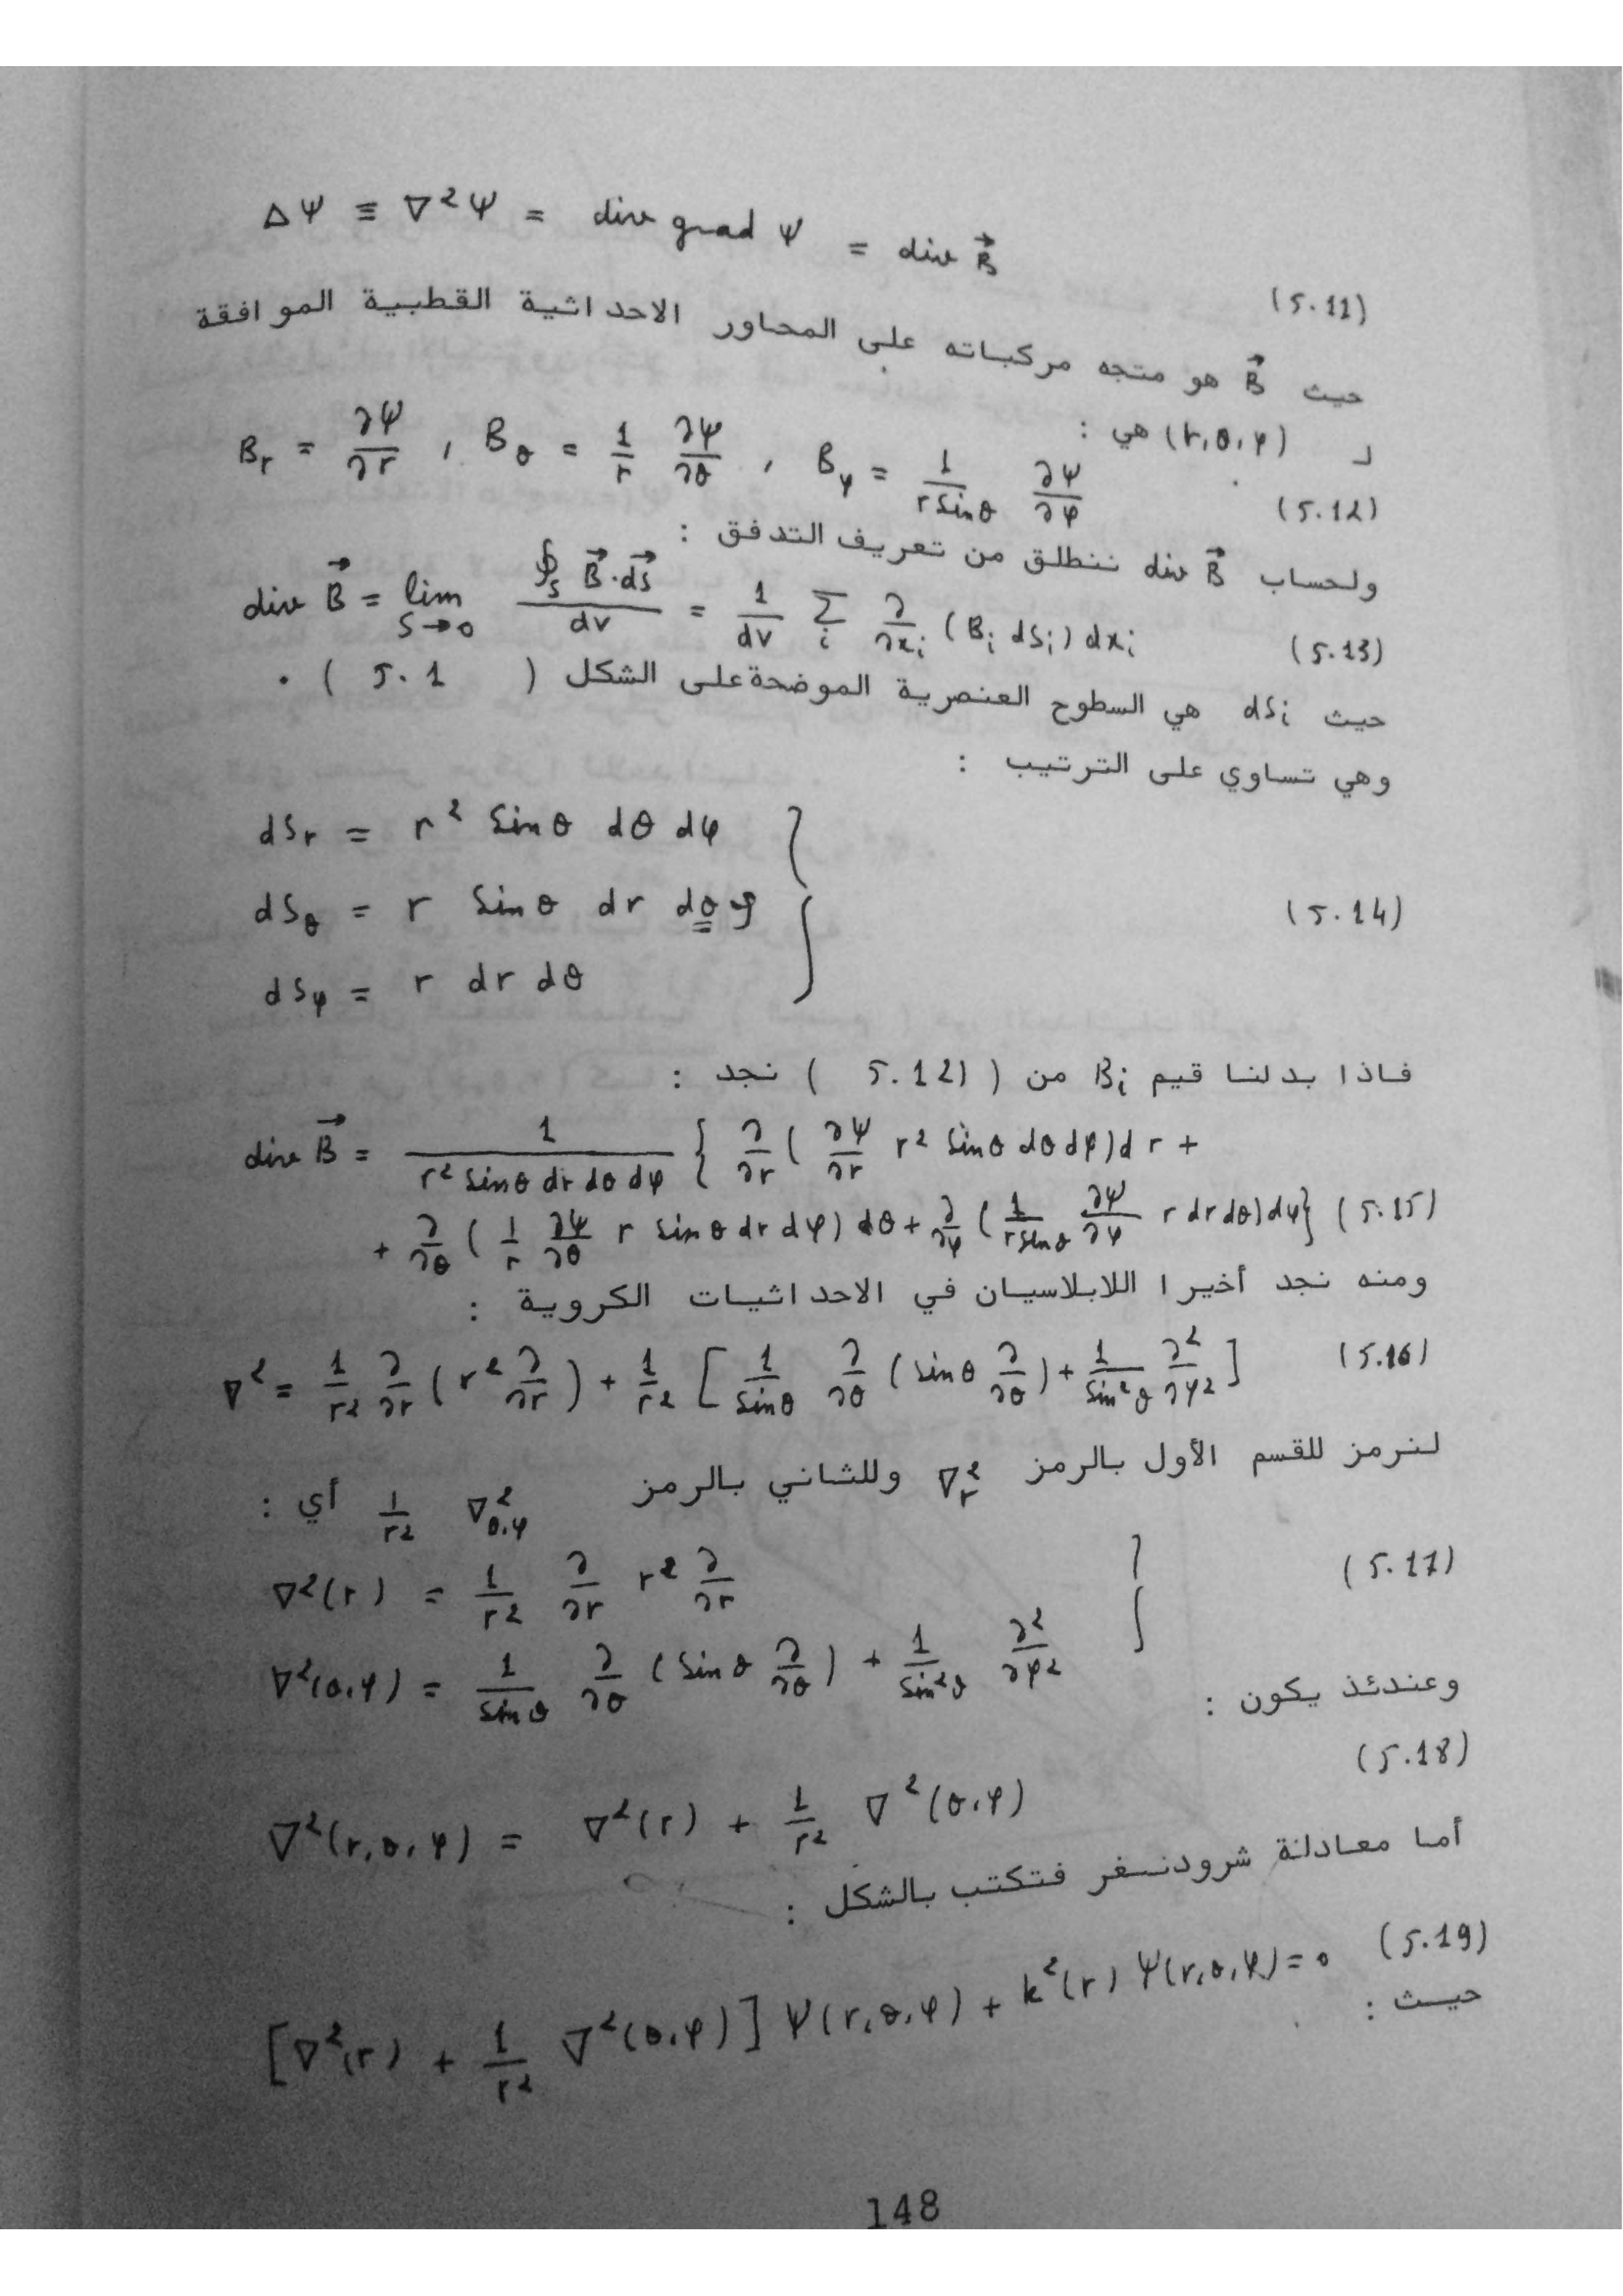 Δψ ≡ ∇²ψ = div grad ψ = div B⃗ (5.11)
حيث B⃗ هو متجه مركباته على المحاور الاحداثية القطبية الموافقة
لـ (r,θ,φ) هي :
B_r = ∂ψ/∂r , B_θ = 1/r ∂ψ/∂θ , B_φ = 1/(r sinθ) ∂ψ/∂φ (5.12)
ولحساب div B⃗ ننطلق من تعريف التدفق :
div B⃗ = lim_{S→0} ∮_S B⃗·dS⃗ / dv = 1/dv Σ_i ∂/∂x_i (B_i dS_i) dx_i (5.13)
حيث dS_i هي السطوح العنصرية الموضحة على الشكل ( 5.1 ) .
وهي تساوي على الترتيب :
dS_r = r² sinθ dθ dφ
dS_θ = r sinθ dr dθ φ (5.14)
dS_φ = r dr dθ
فاذا بدلنا قيم B_i من ( (5.12 ) نجد :
div B⃗ = 1/(r² sinθ dr dθ dφ) { ∂/∂r ( ∂ψ/∂r r² sinθ dθ dφ) dr +
+ ∂/∂θ ( 1/r ∂ψ/∂θ r sinθ dr dφ) dθ + ∂/∂φ ( 1/(r sinθ) ∂ψ/∂φ r dr dθ) dφ} (5.15)
ومنه نجد أخيرا اللابلاسيان في الاحداثيات الكروية :
∇² = 1/r² ∂/∂r ( r² ∂/∂r ) + 1/r² [ 1/sinθ ∂/∂θ ( sinθ ∂/∂θ ) + 1/sin²θ ∂²/∂φ² ] (5.16)
لنرمز للقسم الأول بالرمز ∇²_r وللثاني بالرمز 1/r² ∇²_{θ,φ} أي :
∇²(r) = 1/r² ∂/∂r r² ∂/∂r (5.17)
∇²(θ,φ) = 1/sinθ ∂/∂θ ( sinθ ∂/∂θ ) + 1/sin²θ ∂²/∂φ²
وعندئذ يكون :
∇²(r,θ,φ) = ∇²(r) + 1/r² ∇²(θ,φ) (5.18)
أما معادلة شرودنـغر فتكتب بالشكل :
[∇²(r) + 1/r² ∇²(θ,φ)] ψ(r,θ,φ) + k²(r) ψ(r,θ,φ) = 0 (5.19)
حيث :
148